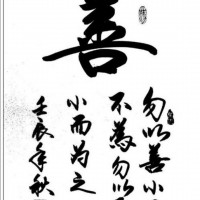 善
勿以善小
不為勿以
小而为之
壬辰年秋